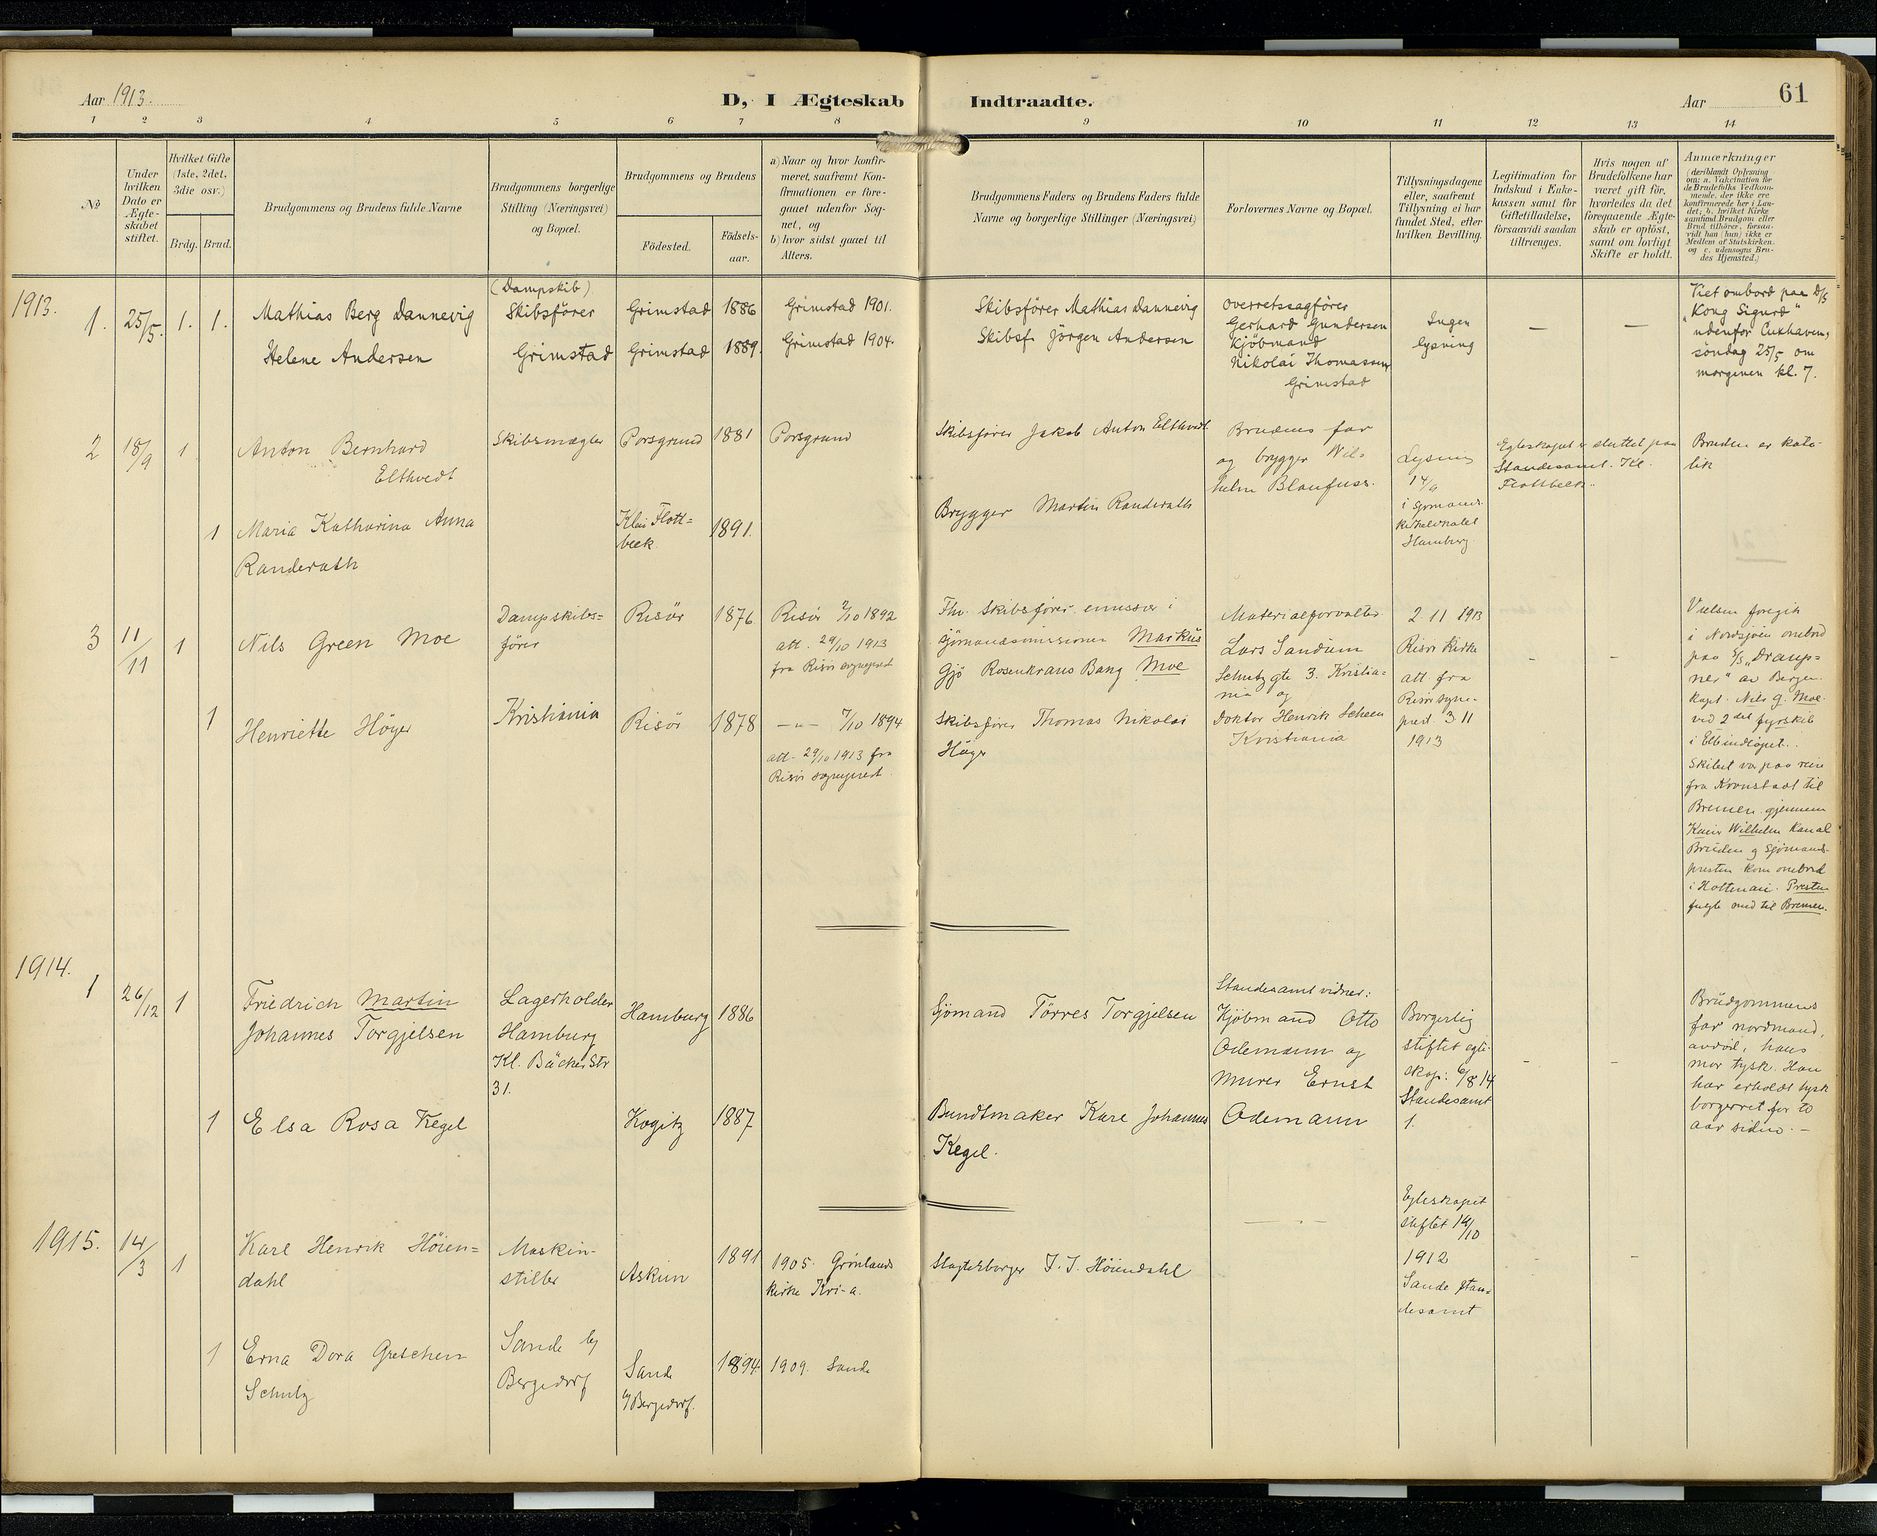 61
Aar 1913.
D, I Ægteskab Indtraadte.
Aar
1 2 3 4 5 6 7 8 9 10 11 12 13 14
No
Under
hvilken
Dato er
Ægte-
skabet
stiftet.
Hvilket Gifte
(1ste, 2det,
3die osv.)
Brdg. Brud.
Brudgommens og Brudens fulde Navne
Brudgommens borgerlige
Stilling (Næringsvei)
og Bopæl.
Brudgommens og Brudens
Födested.
Födsels-
aar.
a) Naar og hvor konfir-
meret, saafremt Kon-
firmationen er fore-
gaaet udenfor Sog-
net, og
b) hvor sidst gaaet til
Alters.
Brudgommens Faders og Brudens Faders fulde
Navne og borgerlige Stillinger (Næringsvei)
Forlovernes Navne og Bopæl.
Tillysningsdagene
eller, saafremt
Tillysning ei har
fundet Sted, efter
hvilken Bevilling.
Legitimation for
Indskud i Enke-
kassen samt for
Giftetilladelse,
forsaavidt saadan
tiltrænges.
Hvis nogen af
Brudefolkene har
været gift før,
hvorledes da det
foregaaende Ægte-
skab er opløst,
samt om lovligt
Skifte er holdt.
Anmærkninger
(deriblandt Oplysning
om: a. Vakcination for
de Brudefolks Vedkom-
mende, der ikke ere
konfirmerede her i Lan-
det; b. hvilket Kirke
samfund Brudgom eller
Brud tilhører, forsaa-
vidt han (hun) ikke er
Medlem af Statskirken.
og c. udensogns Bru-
des Hjemsted.)
1913.
1. 25/5. 1. 1.
Mathias Berg Dannevig
Helene Andersen
(Dampskib)
Skibsfører
Grimstad
Grimstad 1886
Grimstad 1889.
Grimstad 1901.
Grimstad 1904.
Skibsfører Mathias Dannevig
Skibsf. Jörgen Andersen
Overretssagfører
Gerhard Gundersen
Kjøbmand
Nikolai Thomassen
Grimstad
Ingen
lysning
—
—
Viet ombord paa D/S
"Kong Sigurd"
udenfor Cuxhaven,
søndag 25/5 om
morgenen kl. 7.
2 18/9 1
Anton Bernhard
Elthvedt
Skibsmægler
Porsgrund 1881
Porsgrund
Skibsfører Jakob Anton Elthvedt
Brudens far
og brygger
Blaufuss.
14/9
i Sjømands-
Hamburg
Egteskapet er sluttet paa
Standesamt. Kl.
Flottbeck.
Bruden er kato-
lik
1 Maria Katharina Anna
Randerath
Klein Flott-
beck 1891.
Brygger Martin Randerath
3 11/11 1
Nils Green Moe
Dampskibs-
fører
Risør 1876
Risør 2/10 1892
att. 29/10 1913
fra Risør sogneprest
Fhv. Skibsfører, emissær i
sjømandsmissionen Markus
Gjø Rosenkrans Bang Moe
Materialforvalter
Lars Sandum
Schultzgte 3. Kristia-
nia og
Doktor Henrik Scheen
Kristiania
2 11 1913
Risør Kirke
att. fra
Risør sogne-
prest 3 11
1913
-
-
1 Henriette Höyer
Kristiania
Risør 1878
— „ — 7/10 1894
att. 29/10 1913 fra
Risør sogneprest.
Skibsfører Thomas Nikolai
Höyer
Vielsen foregik
i Nordsjøen ombord
paa S/S "Draup-
ner" av Bergen
kapt. Nils G. Moe.
ved 2det fyrskib
i Elbindløpet.
Skibet var paa reise
fra Kronstadt til
Bremen gjennem
Kaiser Wilhelm Kanal
Bruden og Sjømands-
presten kom ombord
i Holtenau. Presten
fulgte med til Bremen.
1914.
1 26/12 1
Friedrich Martin
Johannes Torgjelsen
Lagerholder
Hamburg
Kl. Bäckerstr
31.
Hamburg 1886
Sjømand Törres Torgjelsen
Standesamt vidner:
Kjøbmand Otto
Odemann og
Murer Ernst
Odemann
Borgerlig
stiftet egte-
skap: 6/8 14
Standesamt
1.
-
-
Brudgommens
far nordmand,
avdød, hans
mor tysk. Han
har erholdt tysk
borgerret for 20
aar siden. –
1 Elsa Rosa Kegel
Kogitz 1887
Bundtmaker Karl Johannes
Kegel.
1915. 14/3 1
Karl Henrik Höien-
dahl
Maskin-
stiller
Askim 1891
1905. Grønlands
kirke Kri-a.
Slagterborger J. J. Höiendahl
— „ —
Egteskapet
stiftet 14/10
1912
Sande Stan-
desamt
-
1 Erna Dora Gretchen
Schulz
Sande by
Bergedorf
Sande
b/Bergedorf.
1894.
1909. Sande